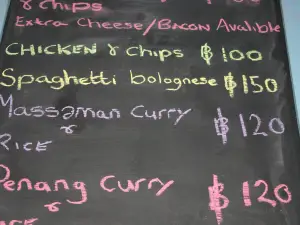 & Chips
Extra Cheese/Bacon Avalible
CHICKEN & Chips ฿100
Spaghetti bolognese ฿150
Massaman Curry ฿120
&
RICE
Penang Curry ฿120
&